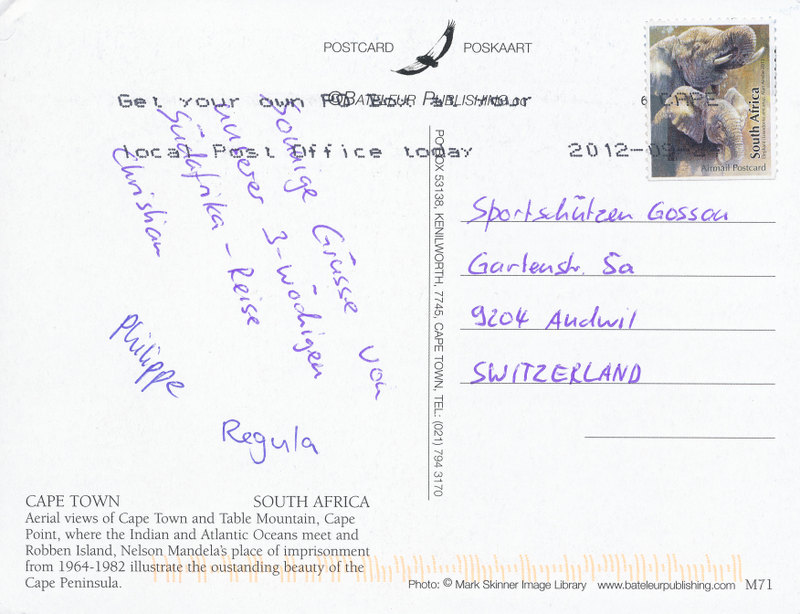 POSTCARD POSKAART
© BATELEUR PUBLISHING
Get your own PO Box at your
local Post Office today
CAPE
2012-09-2
South Africa
Airmail Postcard
Sonnige Grüsse von
unserer 3-wöchigen
Südafrika-Reise
Christian
Philippe
Regula
PO BOX 53138, KENILWORTH, 7745, CAPE TOWN, TEL: (021) 794 3170
Sportschützen Gossau
Gartenstr. 5a
9204 Andwil
SWITZERLAND
CAPE TOWN SOUTH AFRICA
Aerial views of Cape Town and Table Mountain, Cape
Point, where the Indian and Atlantic Oceans meet and
Robben Island, Nelson Mandela's place of imprisonment
from 1964-1982 illustrate the oustanding beauty of the
Cape Peninsula.
Photo: © Mark Skinner Image Library www.bateleurpublishing.com M71